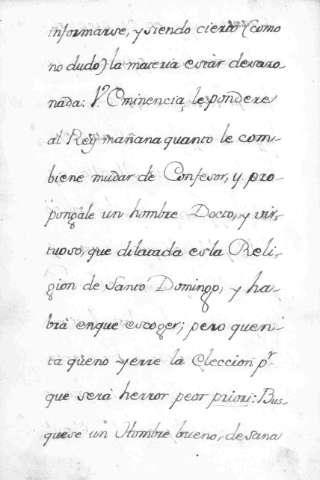 informarse, y siendo cierto (como
no dudo) la materia estár desazo
nada: V.ª Eminencia le pondere
al Rey mañana quanto le com-
biene mudar de Confesor, y pro-
pongàle un hombre Docto, y vir-
tuoso, que dilatada es la Reli-
gion de Santo Domingo, y ha-
brá en que escoger; pero
q.e no yerre la Eleccion p.r
que será herror peor priori: Bus-
quese un Hombre bueno, de sana